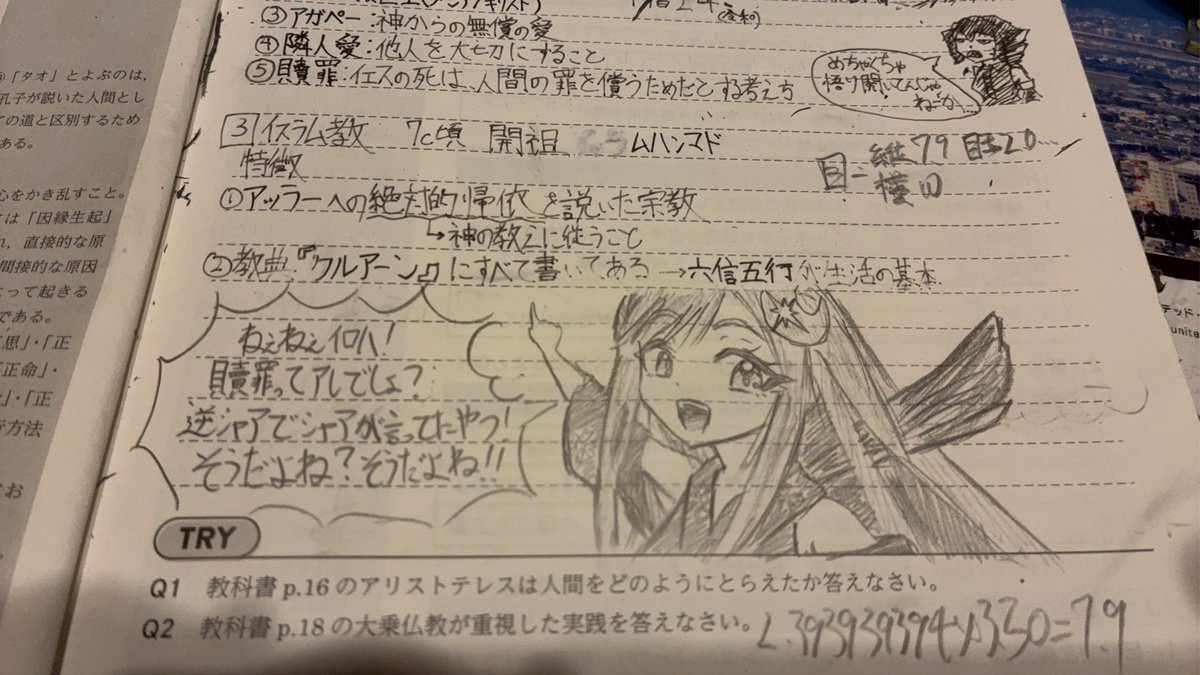 ③アガペー:神からの無償の愛
④隣人愛:他人を大切にすること
⑤贖罪:イエスの死は、人間の罪を償うためだとする考え方
めちゃくちゃ
悟り開いてんじゃ
ねーか
3 イスラム教 7C頃 開祖 ムハンマド
特徴
①アッラーへの絶対的帰依を説いた宗教
↳神の教えに従うこと
②教典『クルアーン』にすべて書いてある→六信五行が生活の基本
縦79
横
ねぇねぇイロハ!
贖罪ってアレでしょ?
逆シャアでシャアが言ってたやつ!
そうだよね?そうだよね!!
TRY
Q1 教科書p.16のアリストテレスは人間をどのようにとらえたか答えなさい。
Q2 教科書p.18の大乗仏教が重視した実践を答えなさい。
「タオ」とよぶのは,
孔子が説いた人間とし
ての道と区別するため
ある。
心をかき乱すこと。
は「因縁生起」
れ,直接的な原
間接的な原因
よって起きる
である。
思」・「正
「正命」・
・「正
行方法
お